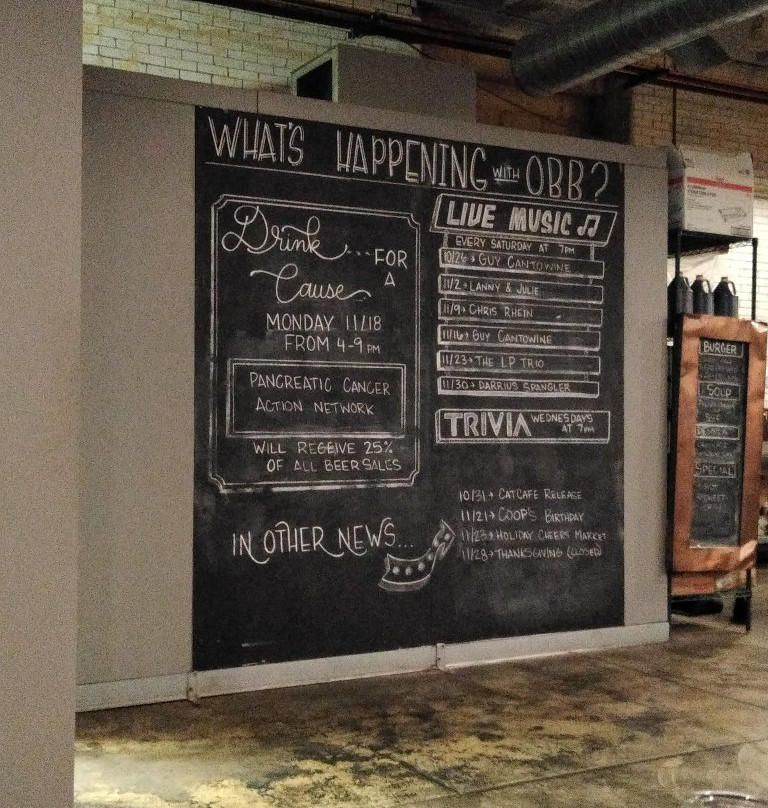 WHAT'S HAPPENING WITH OBB?
Drink...FOR
A
Cause
MONDAY 11/18
FROM 4-9PM
PANCREATIC CANCER
ACTION NETWORK
WILL RECEIVE 25%
OF ALL BEER SALES
LIVE MUSIC ♫
EVERY SATURDAY AT 7PM
10/26→ GUY CANTOWINE
11/2→ LANNY & JULIE
11/9→ CHRIS RHEIN
11/16→ GUY CANTOWINE
11/23→ THE LP TRIO
11/30→ DARRIUS SPANGLER
TRIVIA WEDNESDAYS
AT 7PM
IN OTHER NEWS...
10/31→ CATCAFE RELEASE
11/21→ COOP'S BIRTHDAY
11/23→ HOLIDAY CHEERS MARKET
11/28→ THANKSGIVING (CLOSED)
BURGER
SOUP
SPECIAL